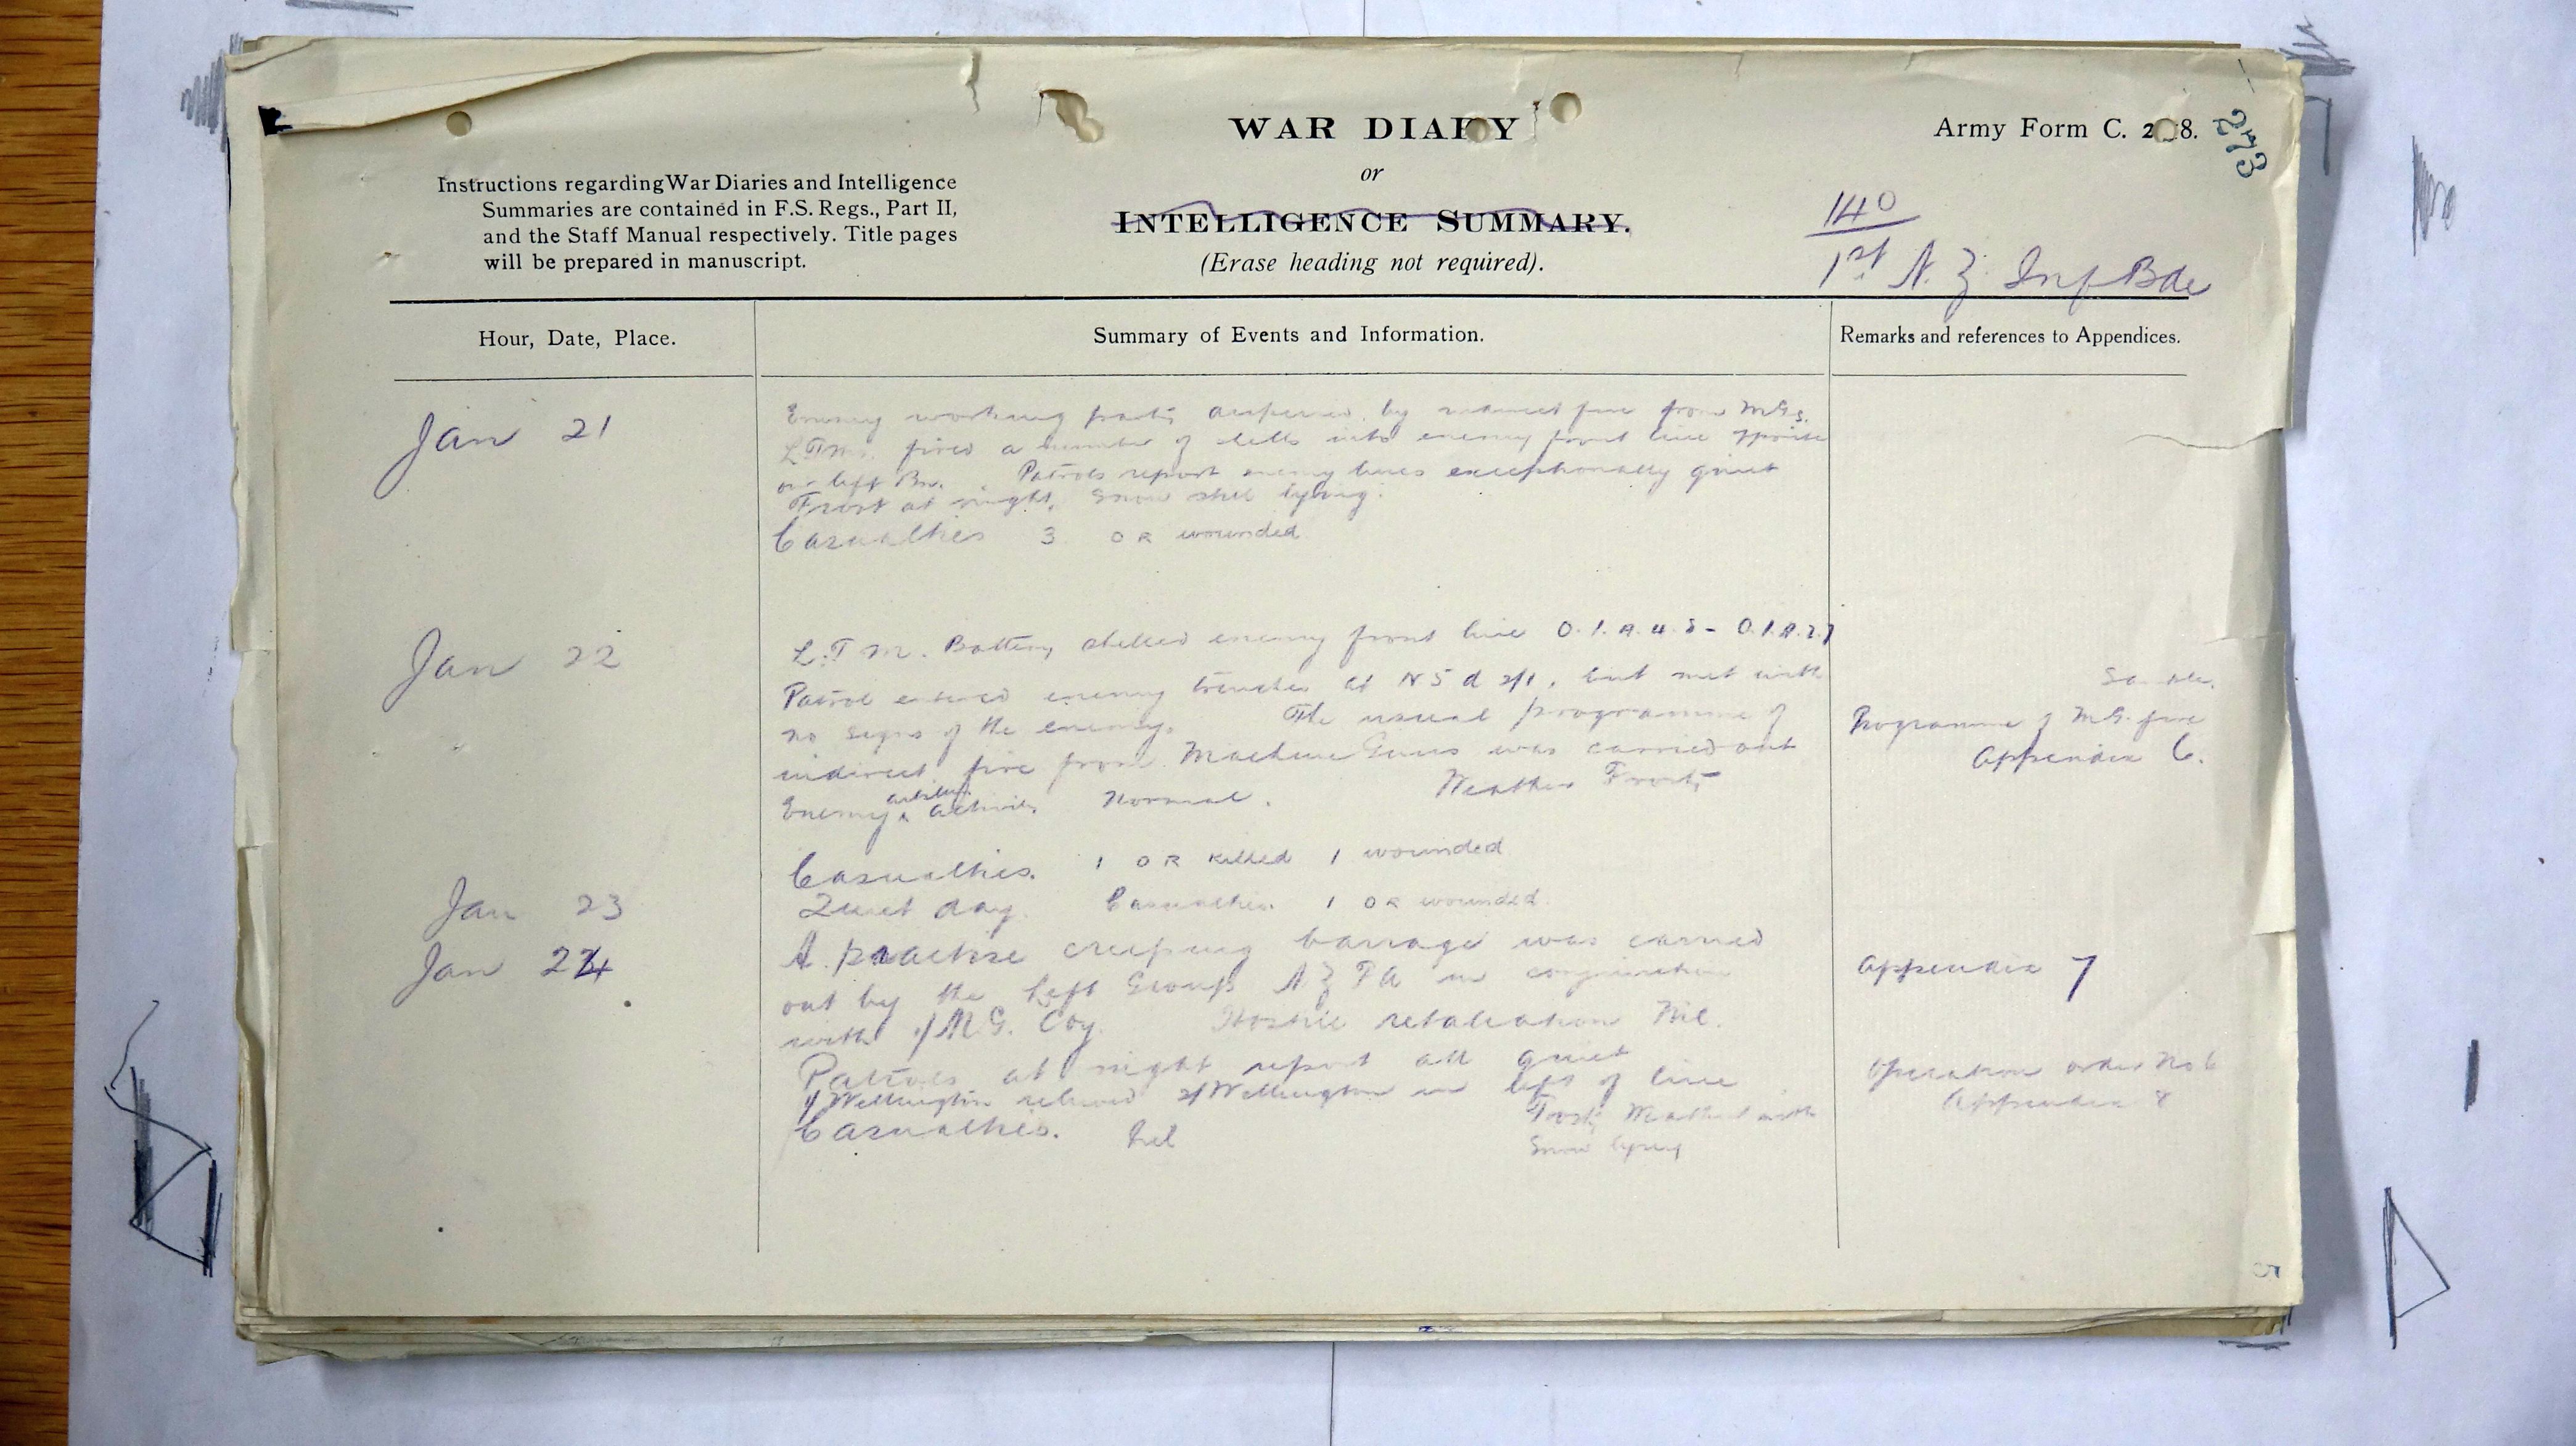 WAR DIARY
or
INTELLIGENCE SUMMARY.
(Erase heading not required).
Army Form C. 2 8.
273
Instructions regarding War Diaries and Intelligence
Summaries are contained in F.S. Regs., Part II,
and the Staff Manual respectively. Title pages
will be prepared in manuscript.
140
1st N. Z. Inf Bde
Hour, Date, Place.
Summary of Events and Information.
Remarks and references to Appendices.
Jan 21
Enemy working party dispersed by indirect fire from M.Gs.
L.T.Ms. fired a number of shells into enemy front line opposite
our left Bn. Patrols report enemy lines exceptionally quiet
Frost at night. Snow still lying.
Casualties 3 OR wounded
Jan 22
L.T.M. Battery shelled enemy front line O.1.A.4.8 - O.1.A.2.7
Patrol entered enemy trenches at N 5 d 2/1, but met with
no signs of the enemy. The usual programme of
indirect fire from Machine Guns was carried out
Enemy artillery activity Normal. Weather Frosty
Programme of M.G. fire
Appendix 6.
Casualties. 1 OR killed 1 wounded
Jan 23
Quiet day. Casualties. 1 OR wounded.
Jan 24
A practise creeping barrage was carried
out by the Left Group N Z FA in conjunction
with 1/M.G. Coy. Hostile retaliation Nil.
Appendix 7
Patrols at night report all quiet
1/Wellington relieved 2/Wellington in left of line
Operation order No 6
Appendix 8
Casualties. Nil
Frosty with
Snow lying